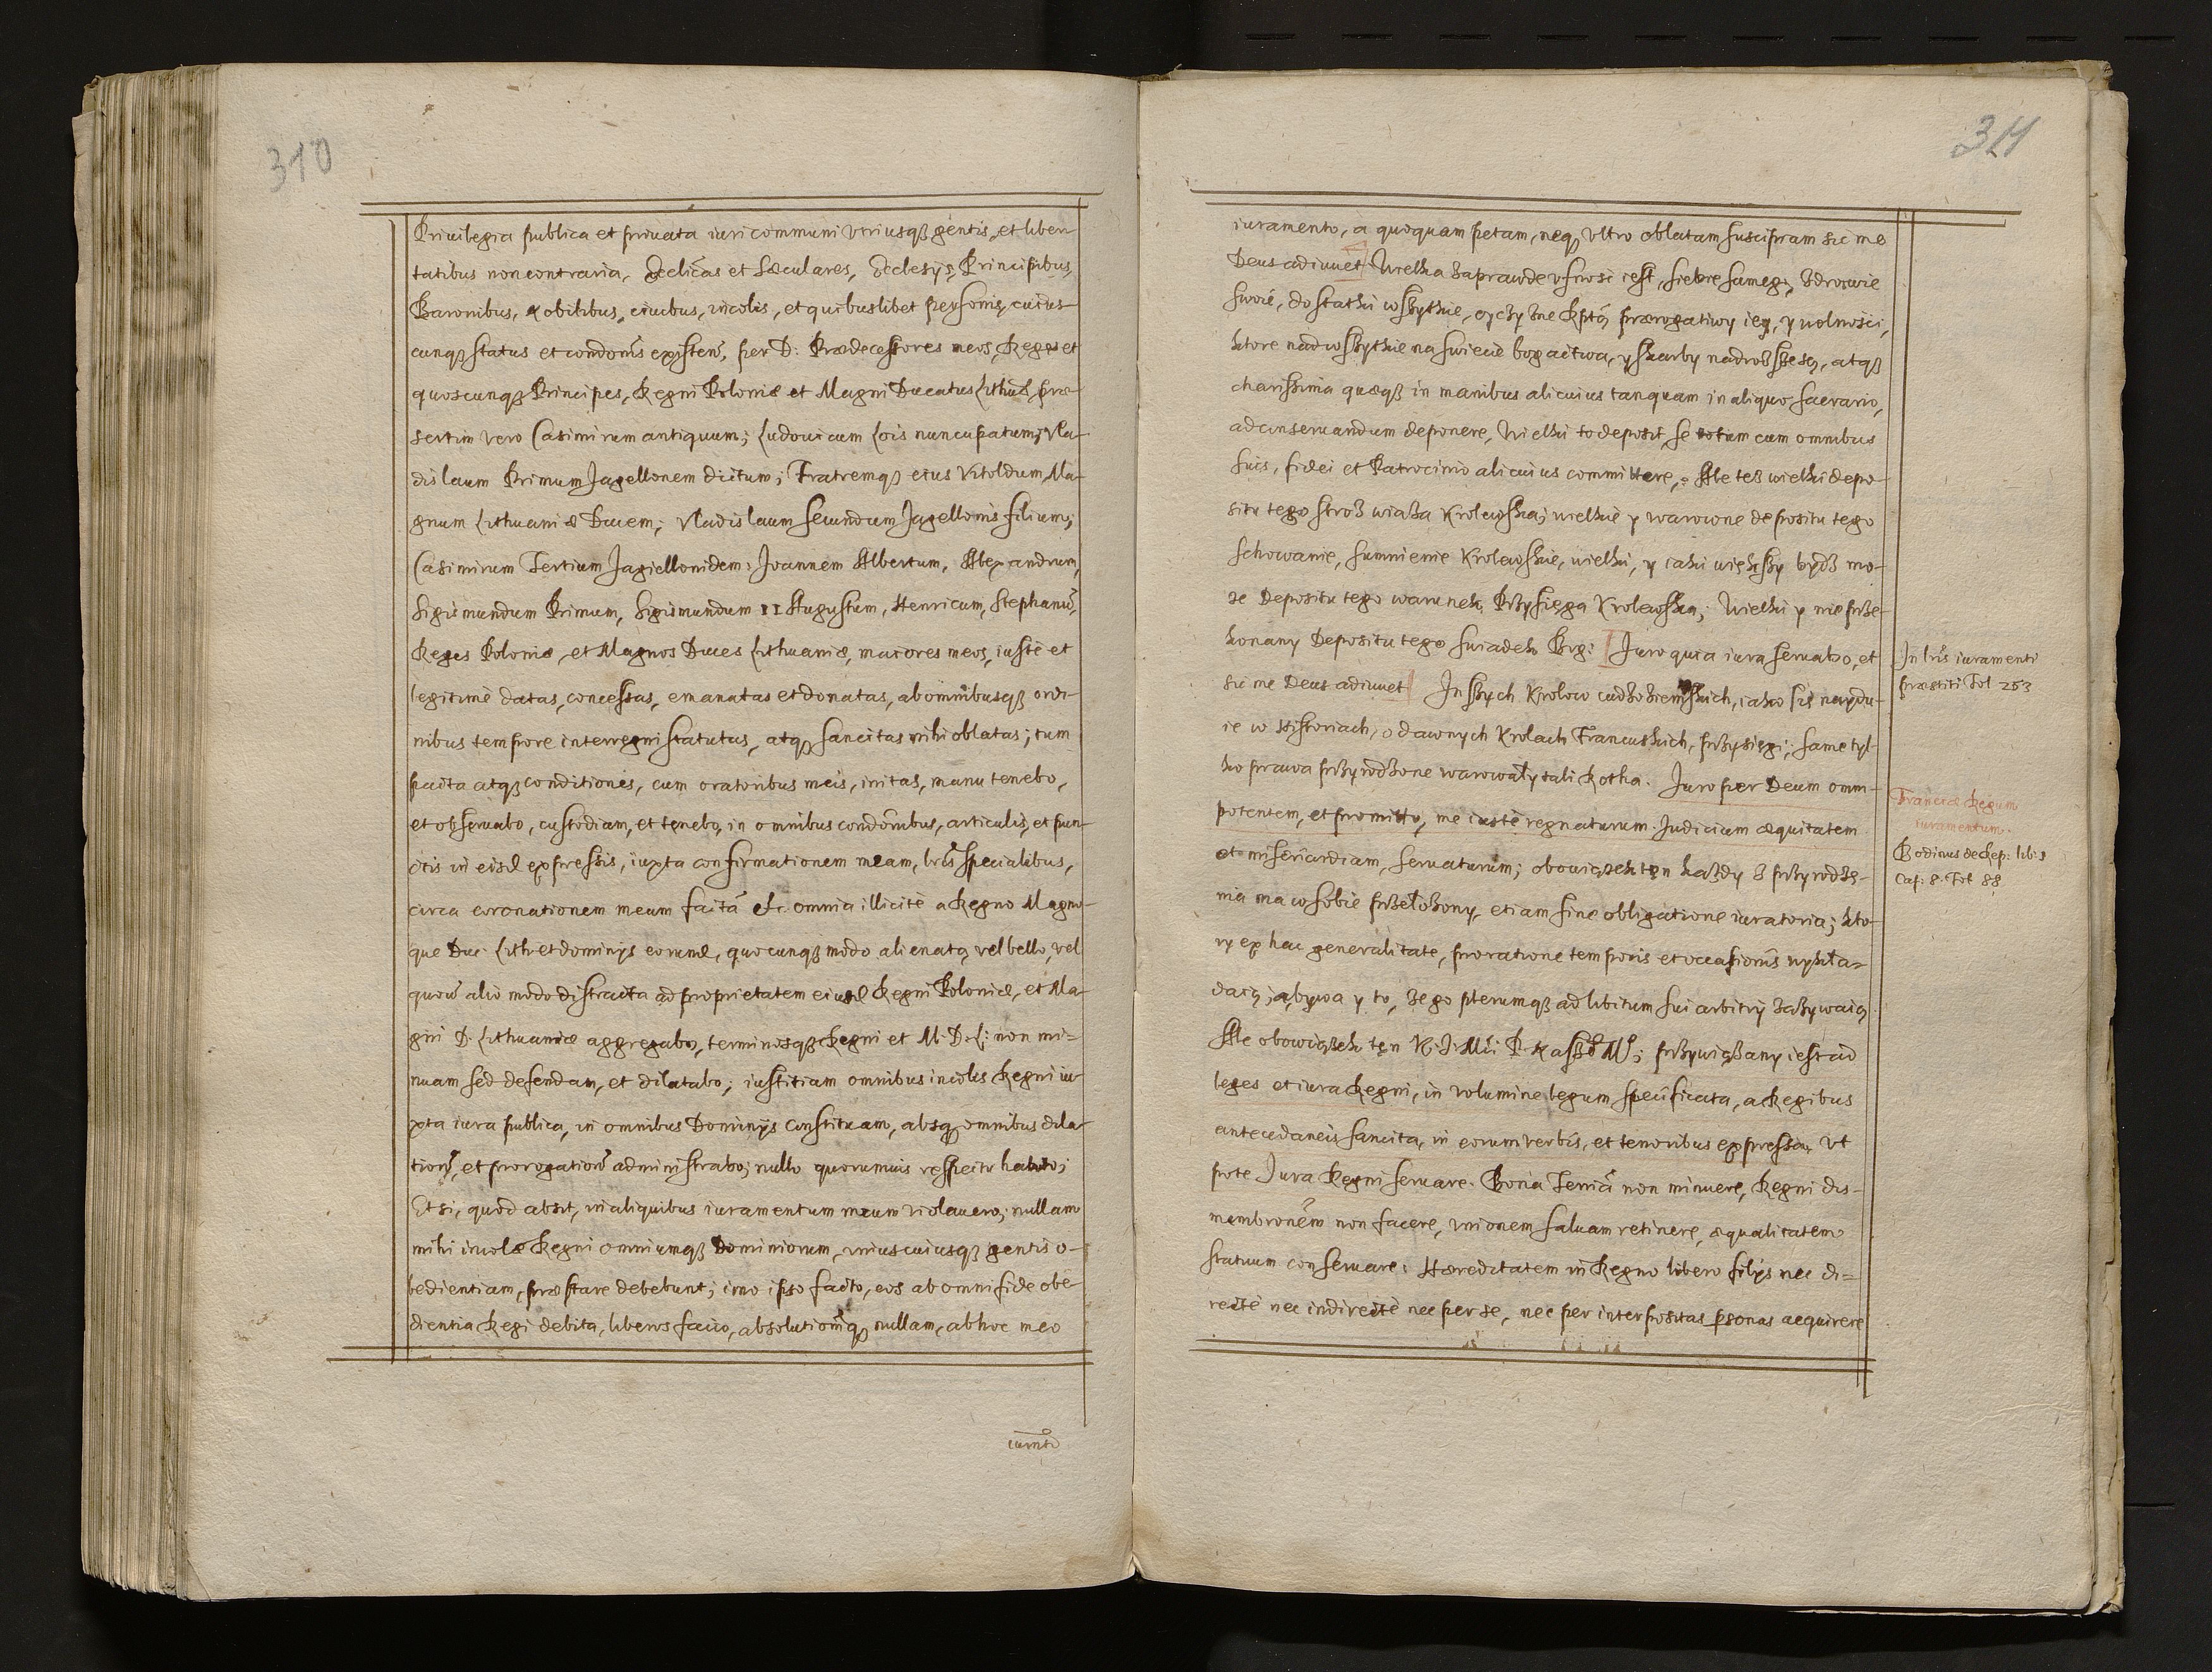 310
Priuilegia publica et priuata iuri communi vtriusqꝫ gentis, et liber
tatibus non contraria, Eccliãs et sæculares, Ecclesijs, Principibus,
Baronibus, Nobilibus, ciuibus, incolis, et quibuslibet personis, cuius
cunqꝫ status et condonis existen, per D: Prædecessores meos, Reges et
quoscunqꝫ Principes, Regni Poloniæ et Magni Ducatus Lithuæ, præ-
sertim vero Casimirum antiquum; Ludouicum Lois nuncupatum; Vla-
dislaum Primum Jagellonem dictum; Fratremqꝫ eius Vitoldum, Ma-
gnum Lithuaniæ Ducem; Vladislaum Secundum Jagellonis filium;
Casimirum Tertium Jagiellonidem: Joannem Albertum, Alexandrum,
Sigismundum Primum, Sigismundum II Augustum, Henricum, Stephanũ,
Reges Poloniæ, et Magnos Duces Lithuaniæ, maiores meos, iustè et
legitimè datas, concessas, emanatas et donatas, ab omnibusqꝫ ordi-
nibus tempore interregni statutas, atqꝫ sancitas mihi oblatas; tum
pacta atqꝫ conditiones, cum oratoribus meis, initas, manu tenebo,
et obseruabo, custodiam, et tenebo, in omnibus condõnibus, articulis, et pun-
ctis in eisd expressis, iuxta confirmationem meam, lrĩs specialibus,
circa coronationem meam factã etc. omnia illicitè a Regno Magno
que Duc: Lith: et dominijs eorund, quocunqꝫ modo alienata, vel bello, vel
quouis alio modo distracta ad proprietatem eiusd Regni Poloniæ, et Ma-
gni D. Lithuaniæ aggregabo, terminosqꝫ Regni et M. D. L: non mi=
nuam sed defendam, et dilatabo; iustitiam omnibus incolis Regni iu-
xta iura publica, in omnibus Dominijs constituam, absqꝫ omnibus dila-
tion, et prorogation administrabo; nullo quorumuis respectu habito;
Et si, quod absit, in aliquibus iuramentum meum violauero; nullam
mihi incolæ Regni omniumqꝫ Dominiorum, vniuscuiusqꝫ gentis o-
bedientiam, præstare debebunt; imo ipso facto, eos ab omni fide obe-
dientia Regi debita, liberos facio, absolutionẽqꝫ nullam, ab hoc meo
iurmto
311
iuramento, a quoquam petam, neqꝫ vltro oblatam suscipiam sic me
Deus adiuuet. Wielka zaprawde vfnosc iest, siebie samego, zdrowie
swoie, dostatki wszytkie, oyczyzne kptą prærogatiwy iey, y wolnosci,
ktore nad wszytkie na swiecie bogactwa, y skarby nadrozsze są, atqꝫ
charissima quæqꝫ in manibus alicuius tanquam in aliquo sacrario,
ad conseruandum deponere, Wielki to deposit, se totum cum omnibus
suis, fidei et Patrocinio alicuius committere. Ale tesz wielki depo-
situ tego stroz wiara Krolewska; wielkie y warowne depositu tego
schowanie, sumnienie Krolewskie, wielki, y iaki większy bydz mo-
ze Depositu tego warunek, Przysięga Krolewska; Wielki y nieprze-
konany Depositu tego swiadek Bog: Juro quia iura seruabo, et
sic me Deus adiuuet. Inszych Krolow cudzoziemskich, iako się nayду-
ie w Historiach, o dawnych Krolach Francuskich, przysiegi; same tyl-
ko prawa przyrodzone warowały tali Rotha. Juro per Deum omni-
potentem, et promitto, me iustè regnaturum. Judicium æquitatem
et misericordiam, seruaturum; obowiązek ten kazdy z przyrodze-
nia ma w sobie przełozony etiam sine obligatione iuratoria; kto-
ry ex hac generalitate, pro ratione temporis et occasionis wykła=
daią; a bywa y to, ze go plerumqꝫ ad libitum sui arbitrij zazywaią
Ale obowiązek ten K. J. Mći P. Naszo Mo; przywiązany iest ad
leges et iura Regni, in volumine legum specificata, a Regibus
antecedaneis sancita, in eorum verbis, et tenoribus expressa, vt
pote Jura Regni seruare. Bona Terriã non minuere, Regni dis-
membronẽm non facere, vnionem saluam retinere, æqualitatem
statuum conseruare: Hæreditatem in Regno libero filijs nec di=
rectè nec indirectè nec per se, nec per interpositas psonas acquirere
In lris iuramenti
præstiti Fol 253
Franciæ Regum
iuramentum.
Bodinus de Rep: lib: 1
Cap: 8. Fol 88